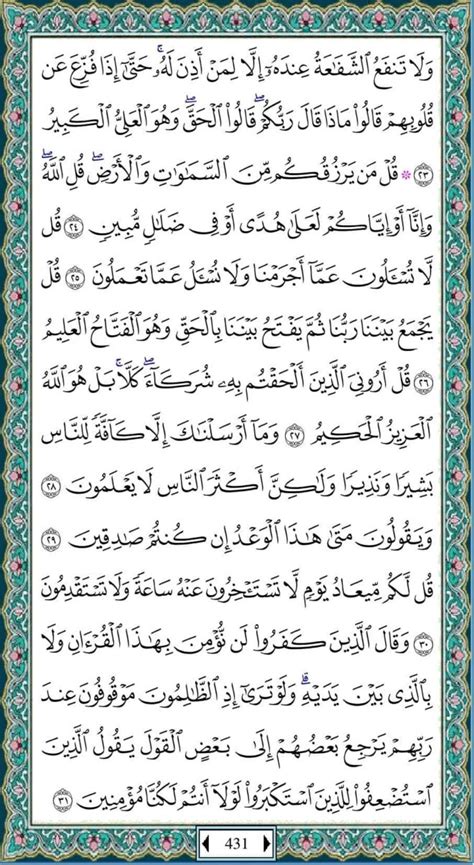 وَلَا تَنفَعُ ٱلشَّفَـٰعَةُ عِندَهُۥٓ إِلَّا لِمَنْ أَذِنَ لَهُۥ ۚ حَتَّىٰٓ إِذَا فُزِّعَ عَن
قُلُوبِهِمْ قَالُوا۟ مَاذَا قَالَ رَبُّكُمْ ۖ قَالُوا۟ ٱلْحَقَّ ۖ وَهُوَ ٱلْعَلِىُّ ٱلْكَبِيرُ
٢٣ ۞ قُلْ مَن يَرْزُقُكُم مِّنَ ٱلسَّمَـٰوَٰتِ وَٱلْأَرْضِ ۖ قُلِ ٱللَّهُ ۖ
وَإِنَّآ أَوْ إِيَّاكُمْ لَعَلَىٰ هُدًى أَوْ فِى ضَلَـٰلٍ مُّبِينٍ ٢٤ قُل
لَّا تُسْـَٔلُونَ عَمَّآ أَجْرَمْنَا وَلَا نُسْـَٔلُ عَمَّا تَعْمَلُونَ ٢٥ قُلْ
يَجْمَعُ بَيْنَنَا رَبُّنَا ثُمَّ يَفْتَحُ بَيْنَنَا بِٱلْحَقِّ وَهُوَ ٱلْفَتَّاحُ ٱلْعَلِيمُ
٢٦ قُلْ أَرُونِىَ ٱلَّذِينَ أَلْحَقْتُم بِهِۦ شُرَكَآءَ ۖ كَلَّا ۚ بَلْ هُوَ ٱللَّهُ
ٱلْعَزِيزُ ٱلْحَكِيمُ ٢٧ وَمَآ أَرْسَلْنَـٰكَ إِلَّا كَآفَّةً لِّلنَّاسِ
بَشِيرًا وَنَذِيرًا وَلَـٰكِنَّ أَكْثَرَ ٱلنَّاسِ لَا يَعْلَمُونَ ٢٨
وَيَقُولُونَ مَتَىٰ هَـٰذَا ٱلْوَعْدُ إِن كُنتُمْ صَـٰدِقِينَ ٢٩
قُل لَّكُم مِّيعَادُ يَوْمٍ لَّا تَسْتَـْٔخِرُونَ عَنْهُ سَاعَةً وَلَا تَسْتَقْدِمُونَ
٣٠ وَقَالَ ٱلَّذِينَ كَفَرُوا۟ لَن نُّؤْمِنَ بِهَـٰذَا ٱلْقُرْءَانِ وَلَا
بِٱلَّذِى بَيْنَ يَدَيْهِ ۗ وَلَوْ تَرَىٰٓ إِذِ ٱلظَّـٰلِمُونَ مَوْقُوفُونَ عِندَ
رَبِّهِمْ يَرْجِعُ بَعْضُهُمْ إِلَىٰ بَعْضٍ ٱلْقَوْلَ يَقُولُ ٱلَّذِينَ
ٱسْتُضْعِفُوا۟ لِلَّذِينَ ٱسْتَكْبَرُوا۟ لَوْلَآ أَنتُمْ لَكُنَّا مُؤْمِنِينَ ٣١
431